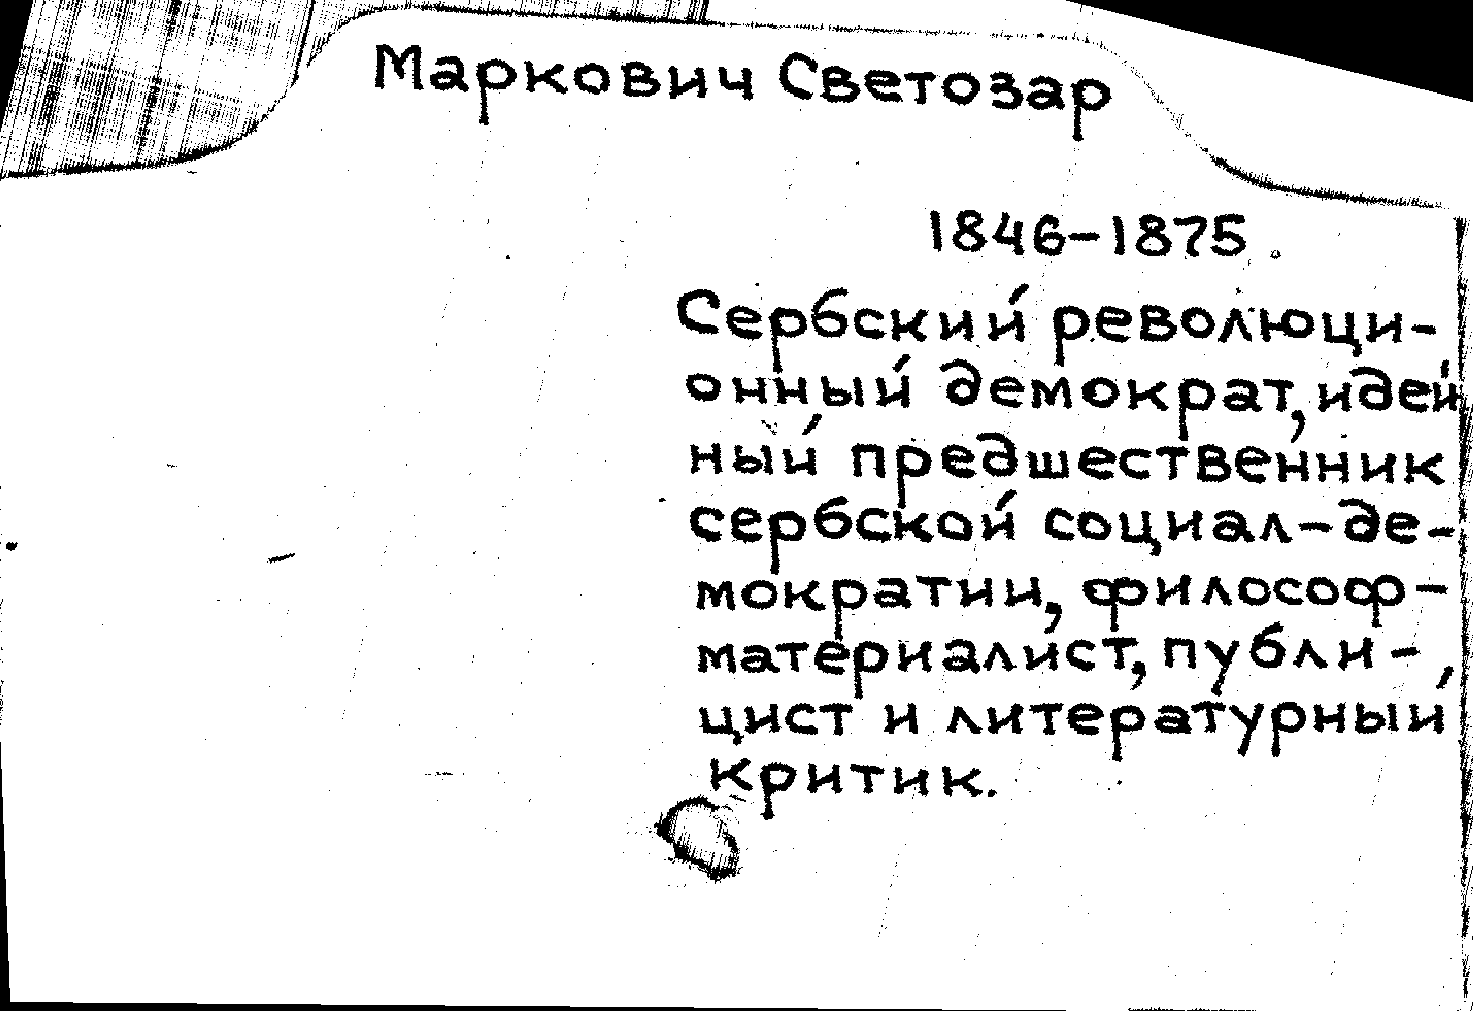 Маркович Светозар
1846-1875.
Сербский революци-
онный демократ, идей
ный предшественник
сербской социал-де-
мократии, философ-
материалист, публи-
цист и литературный
критик.